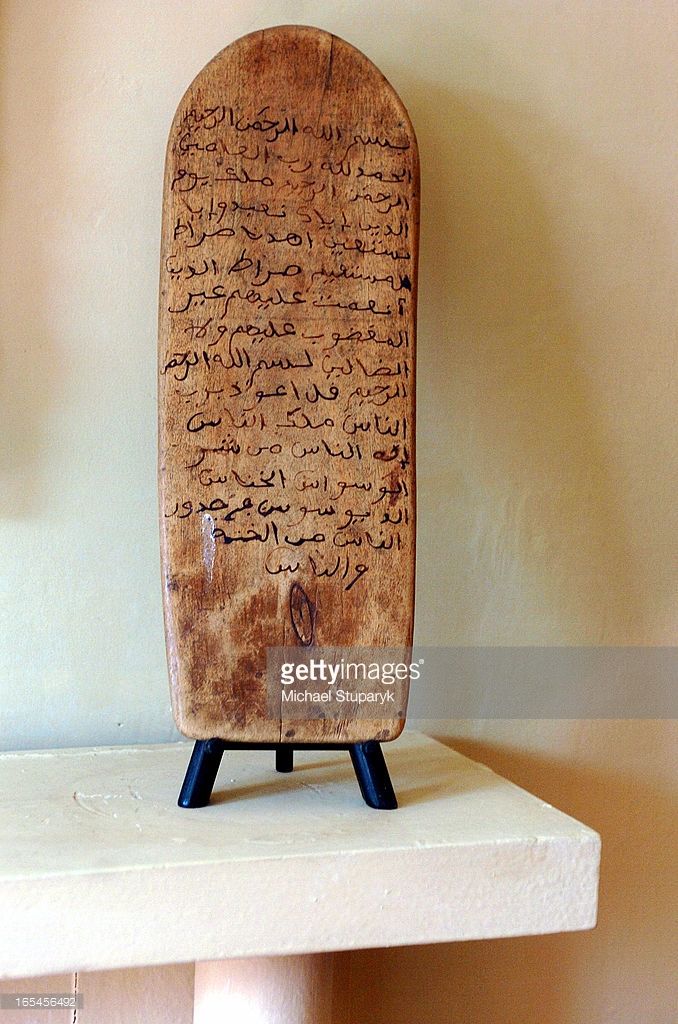 بسم الله الرحمن الرحيم
الحمد لله رب العلمين
الرحمن الرحيم ملك يوم
الدين إياك نعبد وإيا
نستعين اهدنا صراط
لمستقيم صراط الذين
أنعمت عليهم غير
المغضوب عليهم ولا
الضالين بسم الله الرحمن
الرحيم قل اعوذ برب
الناس ملك الناس
إله الناس من شر
الوسواس الخناس
الذي يوسوس في صدور
الناس من الجنة
والناس
gettyimages®
Michael Stuparyk
165456492